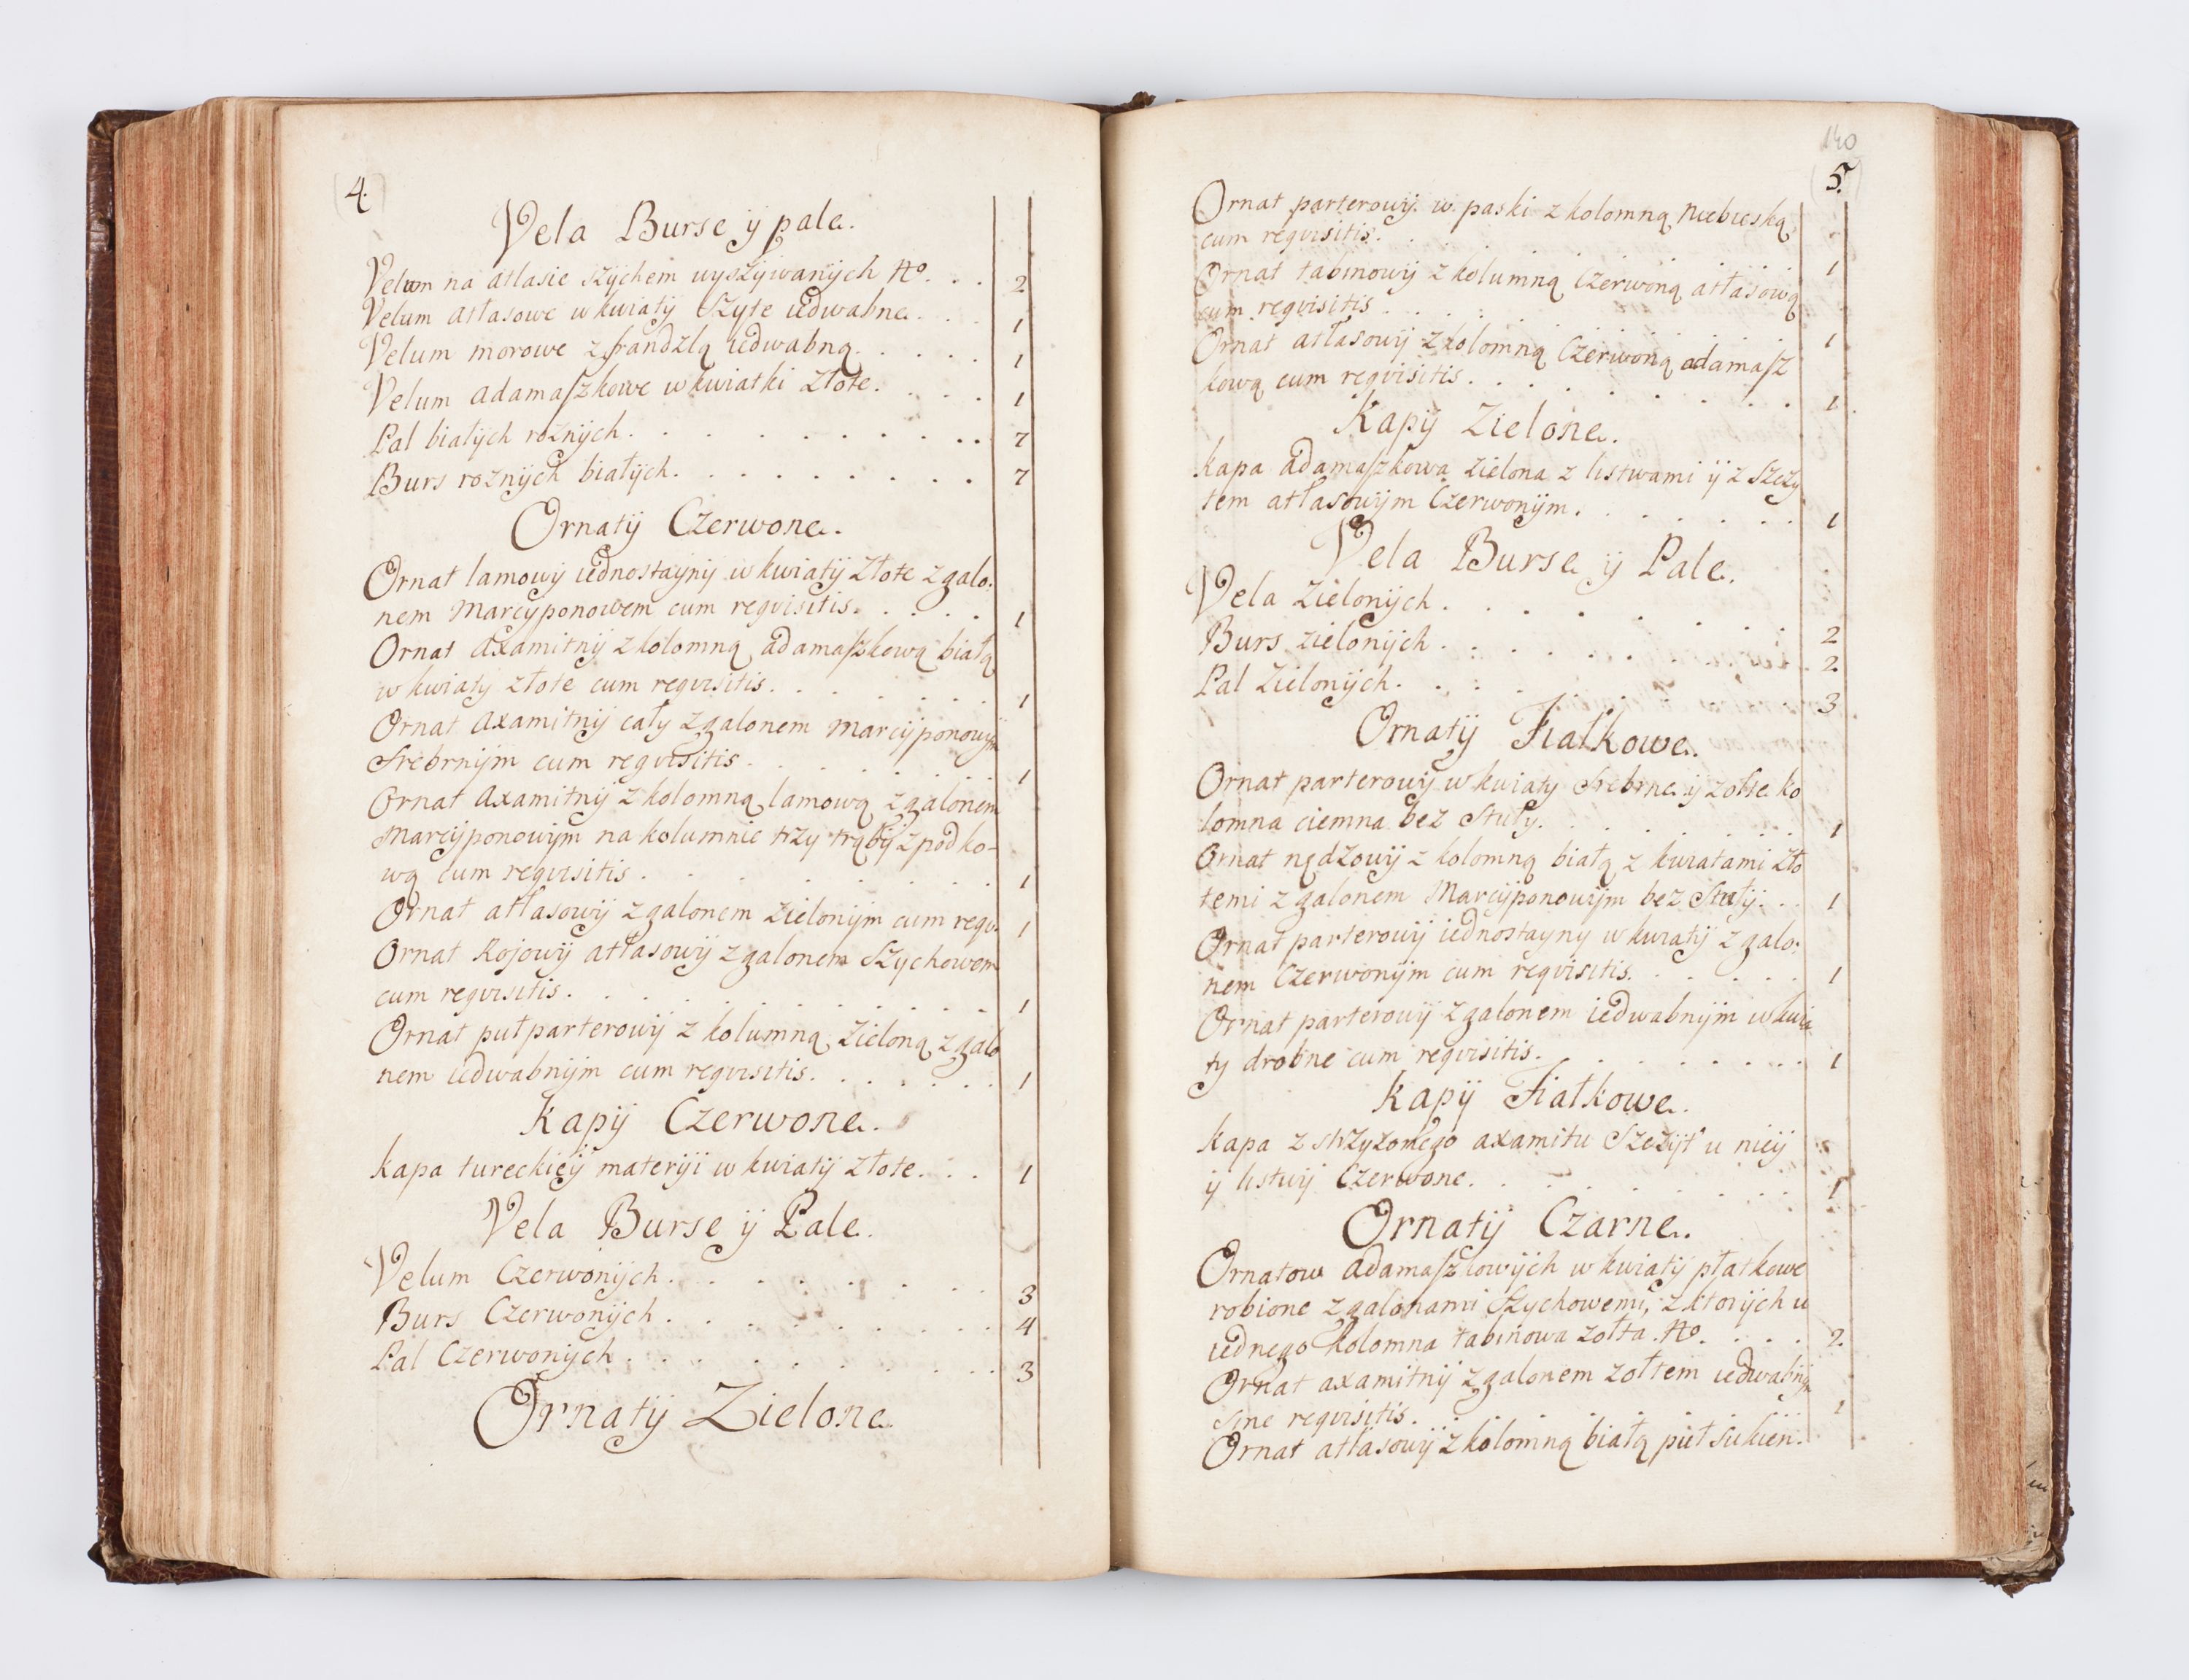 4.
Vela Burse ÿ pale.
Velum na atlasie szÿchem wyszÿwanÿch No. . . 2
Velum atłasowe w kwiatÿ szyte iedwabne. . . 1
Velum morowe z frandzlą iedwabną. . . . . 1
Velum adamaszkowe w kwiatki złote. . . . 1
Pal białÿch roznÿch. . . . . . . . . . 7
Burs roznÿch białÿch. . . . . . . . 7
Ornatÿ Czerwone.
Ornat lamowÿ iednostaynÿ w kwiatÿ złote z galo:
nem Marcyponowem cum reqvisitis. . . . . 1
Ornat axamitnÿ z kolomną adamaszkową białą
w kwiaty złote cum reqvisitis. . . . . . . 1
Ornat axamitnÿ cały z galonem Marcÿponowÿm
Srebrnÿm cum reqvisitis . . . . . . . 1
Ornat axamitnÿ z kolomną lamową z galonem
Marcÿponowÿm na kolumnie trzy trąbÿ z podko-
wą cum reqvisitis . . . . . . . . . 1
Ornat atłasowÿ z galonem zielonÿm cum reqv. 1
Ornat Rojowÿ atłasowÿ z galonem szychowem
cum reqvisitis. . . . . . . . . . . 1
Ornat pułparterowÿ z kolumną zieloną z galo
nem iedwabnÿm cum reqvisitis. . . . . . 1
Kapÿ Czerwone.
Kapa tureckieÿ materÿi w kwiatÿ złote. . . 1
Vela Burse ÿ Pale.
Velum Czerwonÿch. . . . . . . . . 3
Burs Czerwonÿch . . . . . . . . . 4
Pal Czerwonÿch . . . . . . . . . . 3
Ornatÿ Zielone
140
5.
Ornat parterowÿ w paski z kolomną niebieską
cum reqvisitis. . . . . . . . . . 1
Ornat tabinowÿ z kolumną czerwoną atłasową
cum reqvisitis . . . . . . . . . . 1
Ornat atłasowÿ z kolomną czerwoną adamasz
kową cum reqvisitis . . . . . . . . 1
Kapÿ Zielone.
Kapa adamaszkowa zielona z listwami ÿ z szczy
tem atłasowÿm czerwonÿm. . . . . . . 1
Vela Burse ÿ Pale.
Vela zielonÿch . . . . . . . . . 2
Burs zielonÿch . . . . . . . . . 2
Pal zielonÿch. . . . 3
Ornatÿ Fiałkowe.
Ornat parterowÿ w kwiaty srebrne ÿ zołte ko
lomna ciemna bez stuły. . . . . . . . 1
Ornat nędzowÿ z kolomną białą z kwiatami zło
temi z galonem Marcÿponowÿm bez Stułÿ. . . 1
Ornat parterowÿ iednostayny w kwiatÿ z galo:
nem Czerwonÿm cum reqvisitis. . . . . . 1
Ornat parterowÿ z galonem iedwabnÿm w kwia
ty drobne cum reqvisitis. . . . . . . . 1
Kapÿ Fiałkowe.
Kapa z strzyzonego axamitu Szczÿt u nieÿ
ÿ listwÿ Czerwone. . . . . . . . . 1
Ornatÿ Czarne.
Ornatow adamaszkowÿch w kwiatÿ płatkowe
robione z galonami szychowemi, z ktorÿch u
iednego kolomna tabinowa zołta. No. . . . . 2
Ornat axamitnÿ z galonem zołtem iedwabnÿm
sine reqvisitis. . . . . . . . . 1
Ornat atłasowÿ z kolomną białą puł sukien: